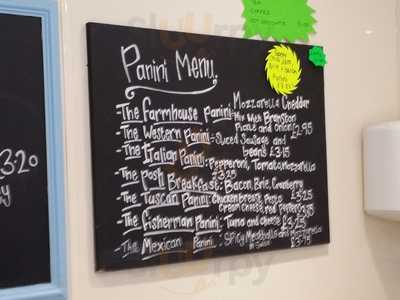 Panini Menu
The Farmhouse Panini: Mozzarella Cheddar
Mix with Branston
Pickle and onion £2.95
The Western Panini: Sliced Sausage and
beans £3.15
The Italian Panini: Pepperoni, Tomato, Mozzarella
£3.25
The Posh Breakfast: Bacon, Brie, Cranberry
The Tuscan Panini: Chicken breast, Pesto £3.25
cream cheese, red pepper £3.95
The Fisherman Panini: Tuna and cheese £3.25
The Mexican Panini: Spicy Meatballs and Mozzarella
£3.75